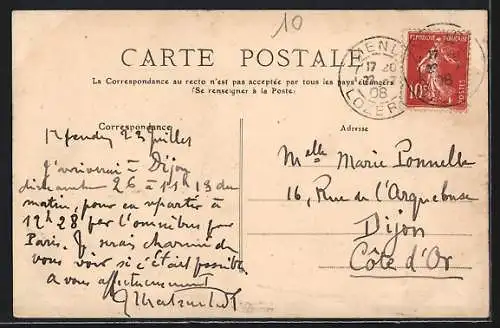 10
CARTE POSTALE
La Correspondance au recto n'est pas acceptée par tous les pays étrangers
(Se renseigner à la Poste)
MENDE
17 20
22 -7
08
LOZERE
REPUBLIQUE FRANÇAISE
10c
POSTES
Correspondance
Adresse
juillet
J'arriverai à Dijon
dimanche 26 à 11h 13 du
matin, pour en repartir à
12h 28 par l'omnibus pour
Paris. Je serais charmé de
vous voir si c'était possible
à vous affectueusement
Melle Marie Ponnelle
16, Rue de l'Arquebuse
Dijon
Côte d'Or